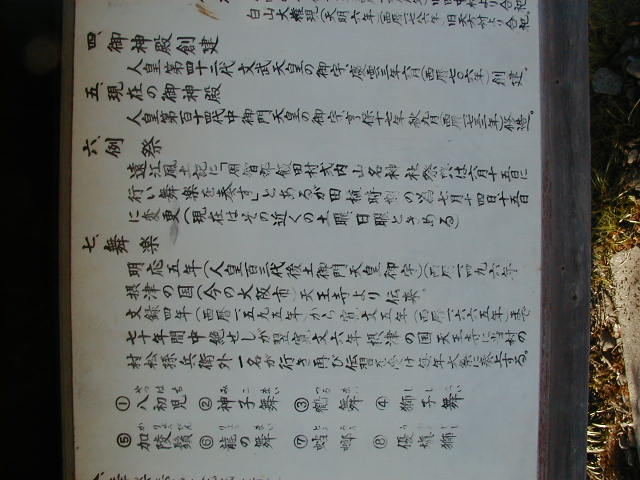 白山大権現(天明六年(西暦一七八六年)旧天方村より合祀。
四、御神殿創建
人皇第四十二代文武天皇の御宇、慶雲三年六月(西暦七〇六年)創建。
五、現在の御神殿
人皇第百十四代中御門天皇の御宇、享保十七年秋九月(西暦一七三二年)修造。
六、例祭
遠江風土記に「周智郡飯田村式内山名神社祭礼は六月十五日に
行い舞楽を奏す」とあるが田植時期の為七月十四日十五日
に変更(現在はその近くの土曜日曜ときめる)
七、舞楽
明応五年(人皇百三代後土御門天皇御宇)(西暦一四九六年
摂津の国(今の大阪市)天王寺より伝来。
文録四年(西暦一五九五年)から寛文五年(西暦一六六五年)まで
七十年間中絶せしが翌寛文六年摂津の国天王寺に当村の
村松孫兵衛外一名が行き再び伝習を受け毎年式祭に奏上する。
①八初児 ②神子舞 ③鶴舞 ④獅子舞
⑤加陵鬢 ⑥龍の舞 ⑦蟷螂 ⑧優填獅